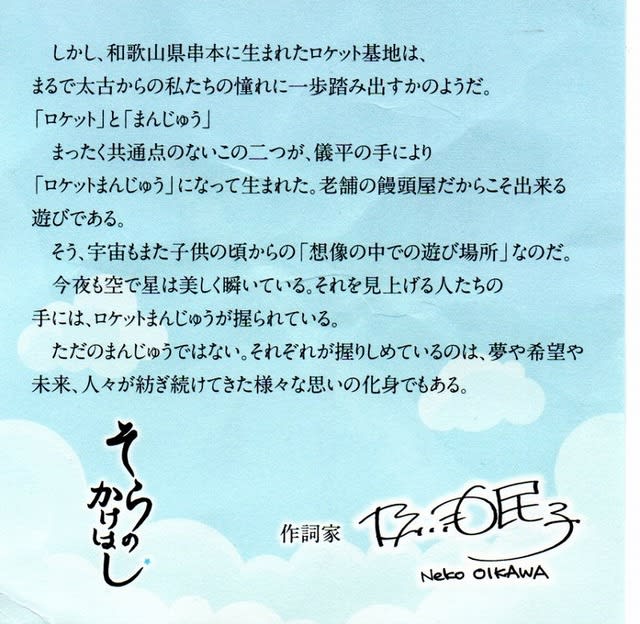 しかし、和歌山県串本に生まれたロケット基地は、
まるで太古からの私たちの憧れに一歩踏み出すかのようだ。
「ロケット」と「まんじゅう」
まったく共通点のないこの二つが、儀平の手により
「ロケットまんじゅう」になって生まれた。老舗の饅頭屋だからこそ出来る
遊びである。
そう、宇宙もまた子供の頃からの「想像の中での遊び場所」なのだ。
今夜も空で星は美しく瞬いている。それを見上げる人たちの
手には、ロケットまんじゅうが握られている。
ただのまんじゅうではない。それぞれが握りしめているのは、夢や希望や
未来、人々が紡ぎ続けてきた様々な思いの化身でもある。
そらの
かけはし
作詞家
Neko OIKAWA